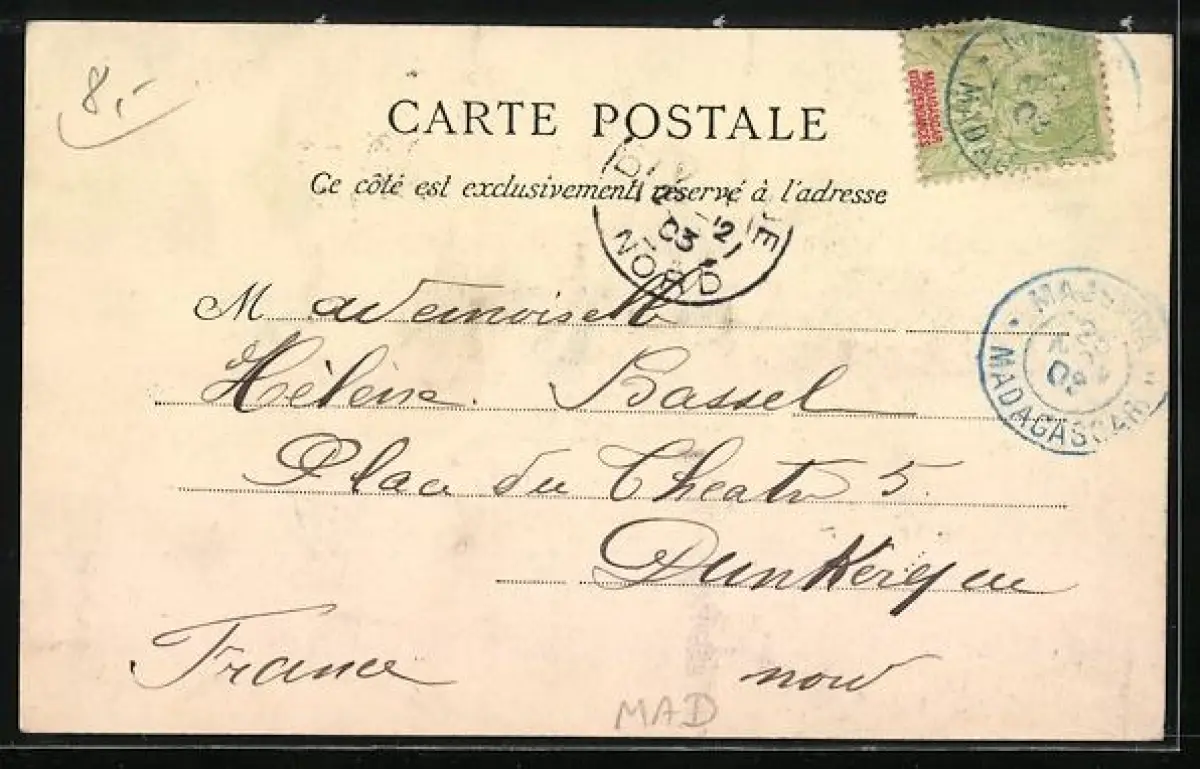 8,-
CARTE POSTALE
Ce côté est exclusivement réservé à l'adresse
MADAGASCAR
ET DÉPENDANCES
MADAGASCAR
03
NORD
MAJUNGA
MADAGASCAR
Mademoiselle
Hélène Bassel
Place du Theatre 5.
Dunkerque
France nord
MAD